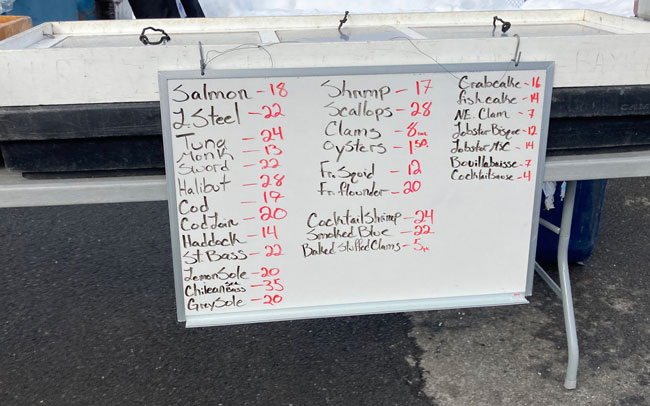 Salmon - 18
L. Steel - 22
Tuna - 24
Monk - 13
Sword - 22
Halibut - 28
Cod - 19
Cod Loin - 20
Haddock - 14
St. Bass - 22
Lemon Sole - 20
Chilean Sea Bass - 35
Grey Sole - 20
Shrimp - 17
Scallops - 28
Clams - 8
Oysters - 1.50
Fr. Squid - 12
Fr. flounder - 20
Cocktail Shrimp - 24
Smoked Blue - 22
Baked Stuffed Clams - 5
Crabcake - 16
fishcake - 14
N.E. Clam - 7
Lobster Bisque - 12
Lobster M&C - 14
Bouillabaisse - 7
Cocktail sause - 4